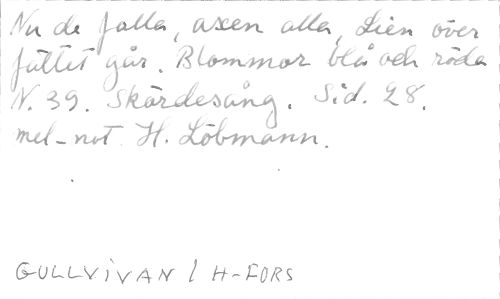 Nu de falla, axen alla, Lien över
fältet går. Blommor blå och röda
N. 39. Skärdesång. Sid. 28.
mel-not. H. Löbmann.
GULLVIVAN / H-FORS